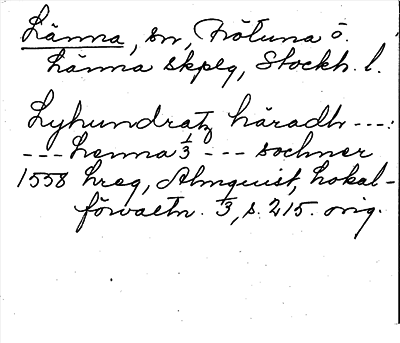 Länna, sn, Frötuna o.
Länna skplg, Stockh. l.
Lyhundratz häradh ---:
--- Lenna 1/3 --- sochner
1558 hreg, Almquist, Lokal-
förvaltn. 3, s. 215. orig.